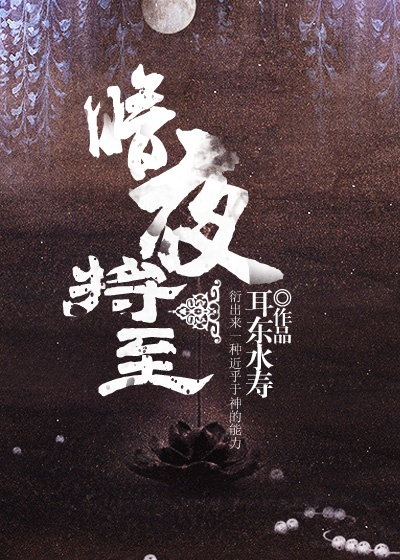 暗夜将至
耳东水寿◎作品
衍出来一种近乎于神的能力